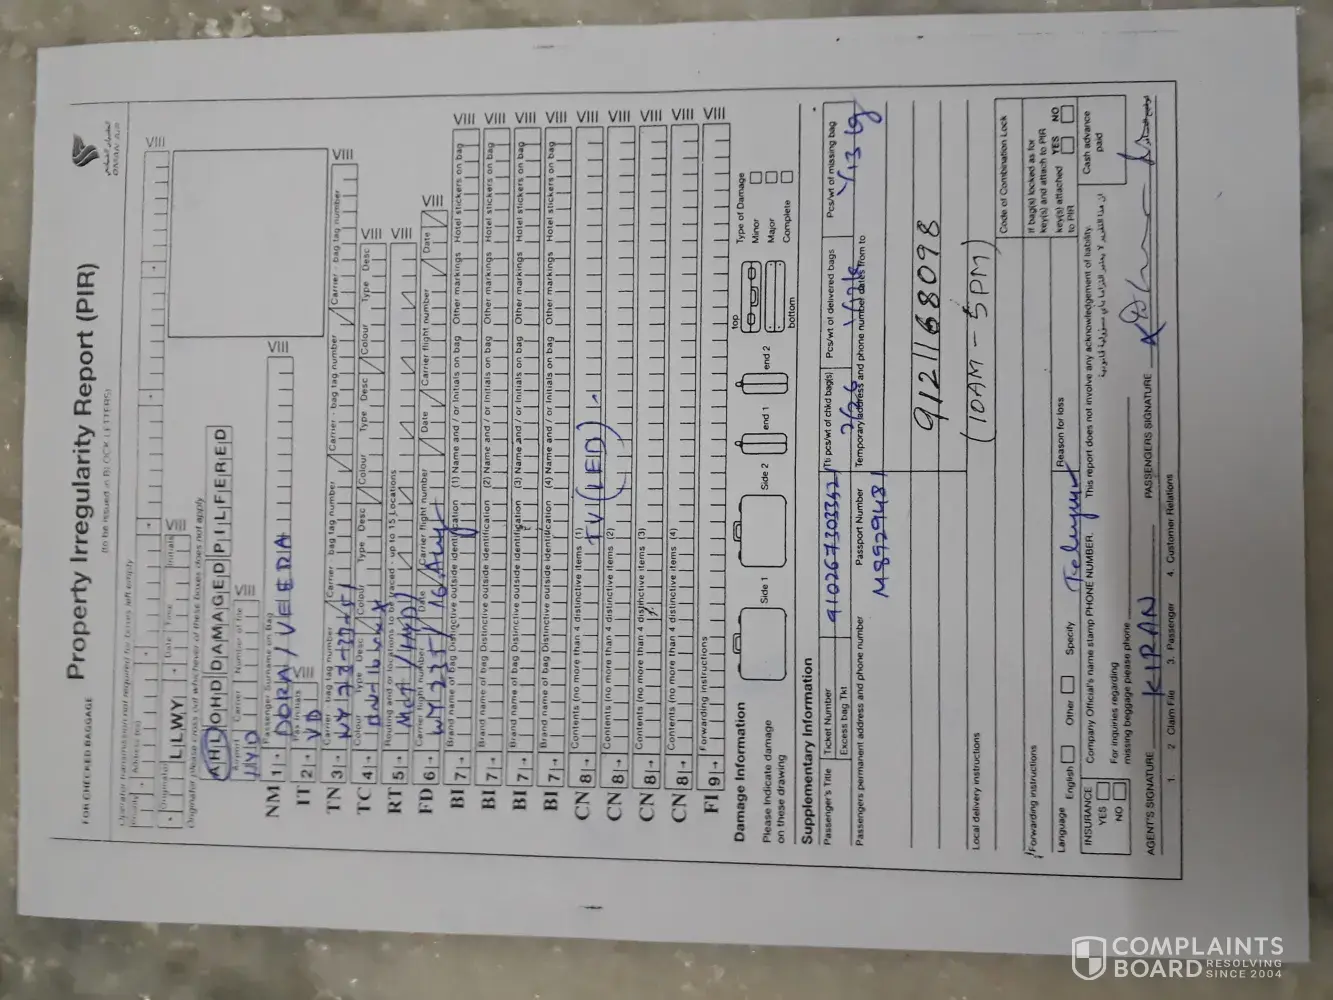 FOR CHECKED BAGGAGE
Property Irregularity Report (PIR)
(to be issued in BLOCK LETTERS)
OMAN AIR
Operator transmission not required for boxes left empty
VIII
Originator
Date
Time
Initials
LLWY
VIII
Originator please cross out whichever of these boxes does not apply
AHL OHD DAMAGED PILFERED
Airport Carrier Number of file
HYD
VIII
Passenger Surname on Bag
NM 1 DORA / VEERA VIII
Pax Initials
IT 2 VD VIII
Carrier - bag tag number Carrier - bag tag number Carrier - bag tag number Carrier - bag tag number
TN 3 WY VIII
Colour Type Desc Colour Type Desc Colour Type Desc Colour Type Desc
TC 4 VIII
Routing and or locations to be traced - up to 15 Locations
RT 5 MCT / HYD VIII
Carrier flight number Date Carrier flight number Date Carrier flight number Date
FD 6 WY 235 / 16 Aug VIII
Brand name of bag Distinctive outside identification (1) Name and / or Initials on bag Other markings Hotel stickers on bag
BI 7 VIII
Brand name of bag Distinctive outside identification (2) Name and / or Initials on bag Other markings Hotel stickers on bag
BI 7 VIII
Brand name of bag Distinctive outside identification (3) Name and / or Initials on bag Other markings Hotel stickers on bag
BI 7 VIII
Brand name of bag Distinctive outside identification (4) Name and / or Initials on bag Other markings Hotel stickers on bag
BI 7 VIII
Contents (no more than 4 distinctive items (1)
CN 8 TV (LED) VIII
Contents (no more than 4 distinctive items (2)
CN 8 VIII
Contents (no more than 4 distinctive items (3)
CN 8 VIII
Contents (no more than 4 distinctive items (4)
CN 8 VIII
Forwarding instructions
FI 9 VIII
Damage Information
Please Indicate damage
on these drawing
Side 1
Side 2
end 1
end 2
top
bottom
Type of Damage
Minor
Major
Complete
Supplementary Information
Passenger's Title
Ticket Number
Excess bag Tkt
9102673033521
Ttl pcs/wt of chkd bag(s)
2/26
Pcs/wt of delivered bags
Pcs/wt of missing bag
1/13 kg
Passengers permanent address and phone number
Passport Number
M8929481
Temporary address and phone number dates from to
9121168098
Local delivery instructions
(10AM - 5PM)
Code of Combination Lock
Forwarding instructions
If bag(s) locked as for
key(s) and attach to PIR
key(s) attached YES NO
to PIR
Language
English
Other
Specify
Telugu
Reason for loss
INSURANCE
YES
NO
Company Official's name stamp PHONE NUMBER.
For inquiries regarding
missing beggage please phone
This report does not involve any acknowledgement of liability.
Cash advance
paid
AGENT'S SIGNATURE KIRAN
PASSENGERS SIGNATURE
1. 2 Claim File 3. Passenger 4. Customer Relations
COMPLAINTS
BOARD RESOLVING
SINCE 2004